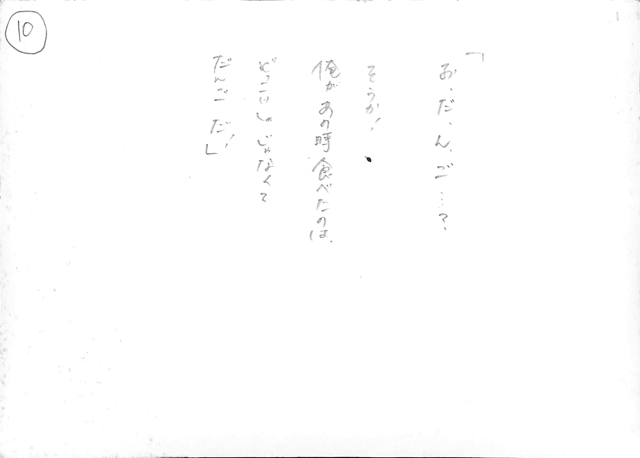 10
「お、だ、ん、ご…?
そうか!
俺があの時食べたのは、
どっこいしょじゃなくて
だんごだ!」